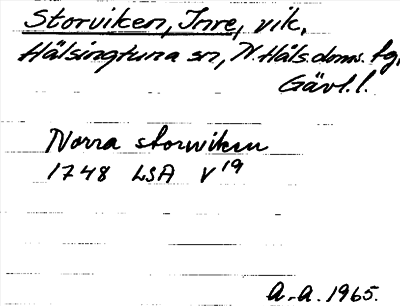 Storviken, Inre, vik,
Hälsingtuna sn, N. Häls. doms. tg,
Gävl. l.
Norra storwiken
1748 LSA V¹⁹
A.-A. 1965.